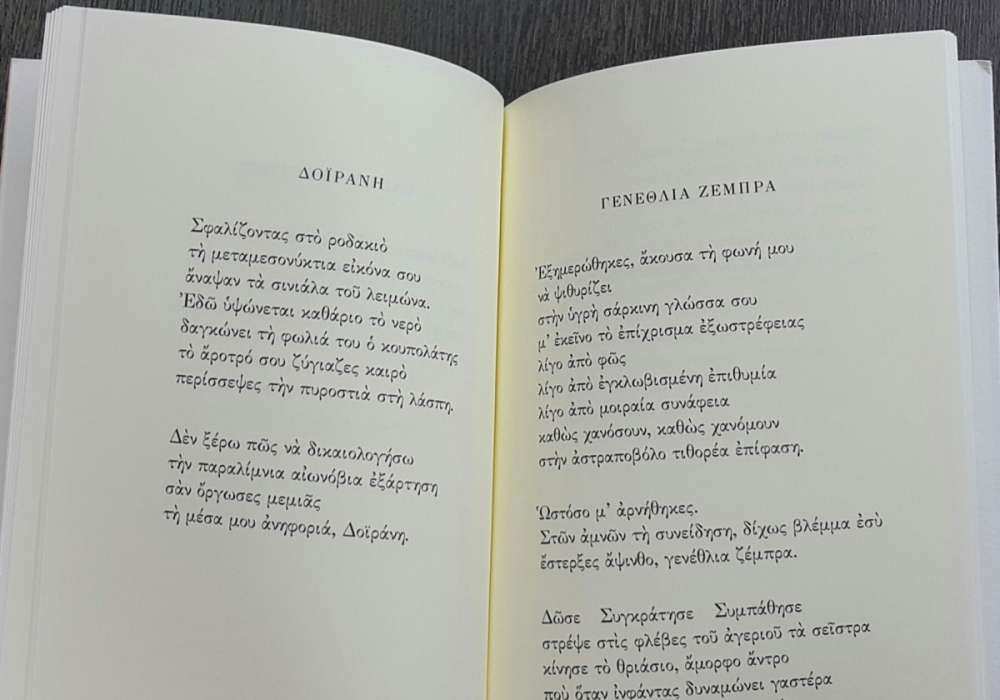 ΔΟΪΡΑΝΗ
Σφαλίζοντας στὸ ροδακιὸ
τὴ μεταμεσονύκτια εἰκόνα σου
ἄναψαν τὰ σινιάλα τοῦ λειμώνα.
Ἐδῶ ὑψώνεται καθάριο τὸ νερὸ
δαγκώνει τὴ φωλιά του ὁ κουπολάτης
τὸ ἄροτρό σου ζύγιαζες καιρὸ
περίσσεψες τὴν πυροστιὰ στὴ λάσπη.
Δὲν ξέρω πῶς νὰ δικαιολογήσω
τὴν παραλίμνια αἰωνόβια ἐξάρτηση
σὰν ὄργωσες μεμιᾶς
τὴ μέσα μου ἀνηφοριά, Δοϊράνη.
ΓΕΝΕΘΛΙΑ ΖΕΜΠΡΑ
Ἐξημερώθηκες, ἄκουσα τὴ φωνή μου
νὰ ψιθυρίζει
στὴν ὑγρὴ σάρκινη γλώσσα σου
μ’ ἐκεῖνο τὸ ἐπίχρισμα ἐξωστρέφειας
λίγο ἀπὸ φῶς
λίγο ἀπὸ ἐγκλωβισμένη ἐπιθυμία
λίγο ἀπὸ μοιραία συνάφεια
καθὼς χανόσουν, καθὼς χανόμουν
στὴν ἀστραποβόλο τιθορέα ἐπίφαση.
Ὡστόσο μ’ ἀρνήθηκες.
Στῶν ἀμνῶν τὴ συνείδηση, δίχως βλέμμα ἐσὺ
ἔστερξες ἄψινθο, γενέθλια ζέμπρα.
Δῶσε Συγκράτησε Συμπάθησε
στρέψε στὶς φλέβες τοῦ ἀγεριοῦ τὰ σεῖστρα
κίνησε τὸ θριάσιο, ἄμορφο ἄντρο
ποὺ ὅταν ἰνφάντας δυναμώνει γαστέρα